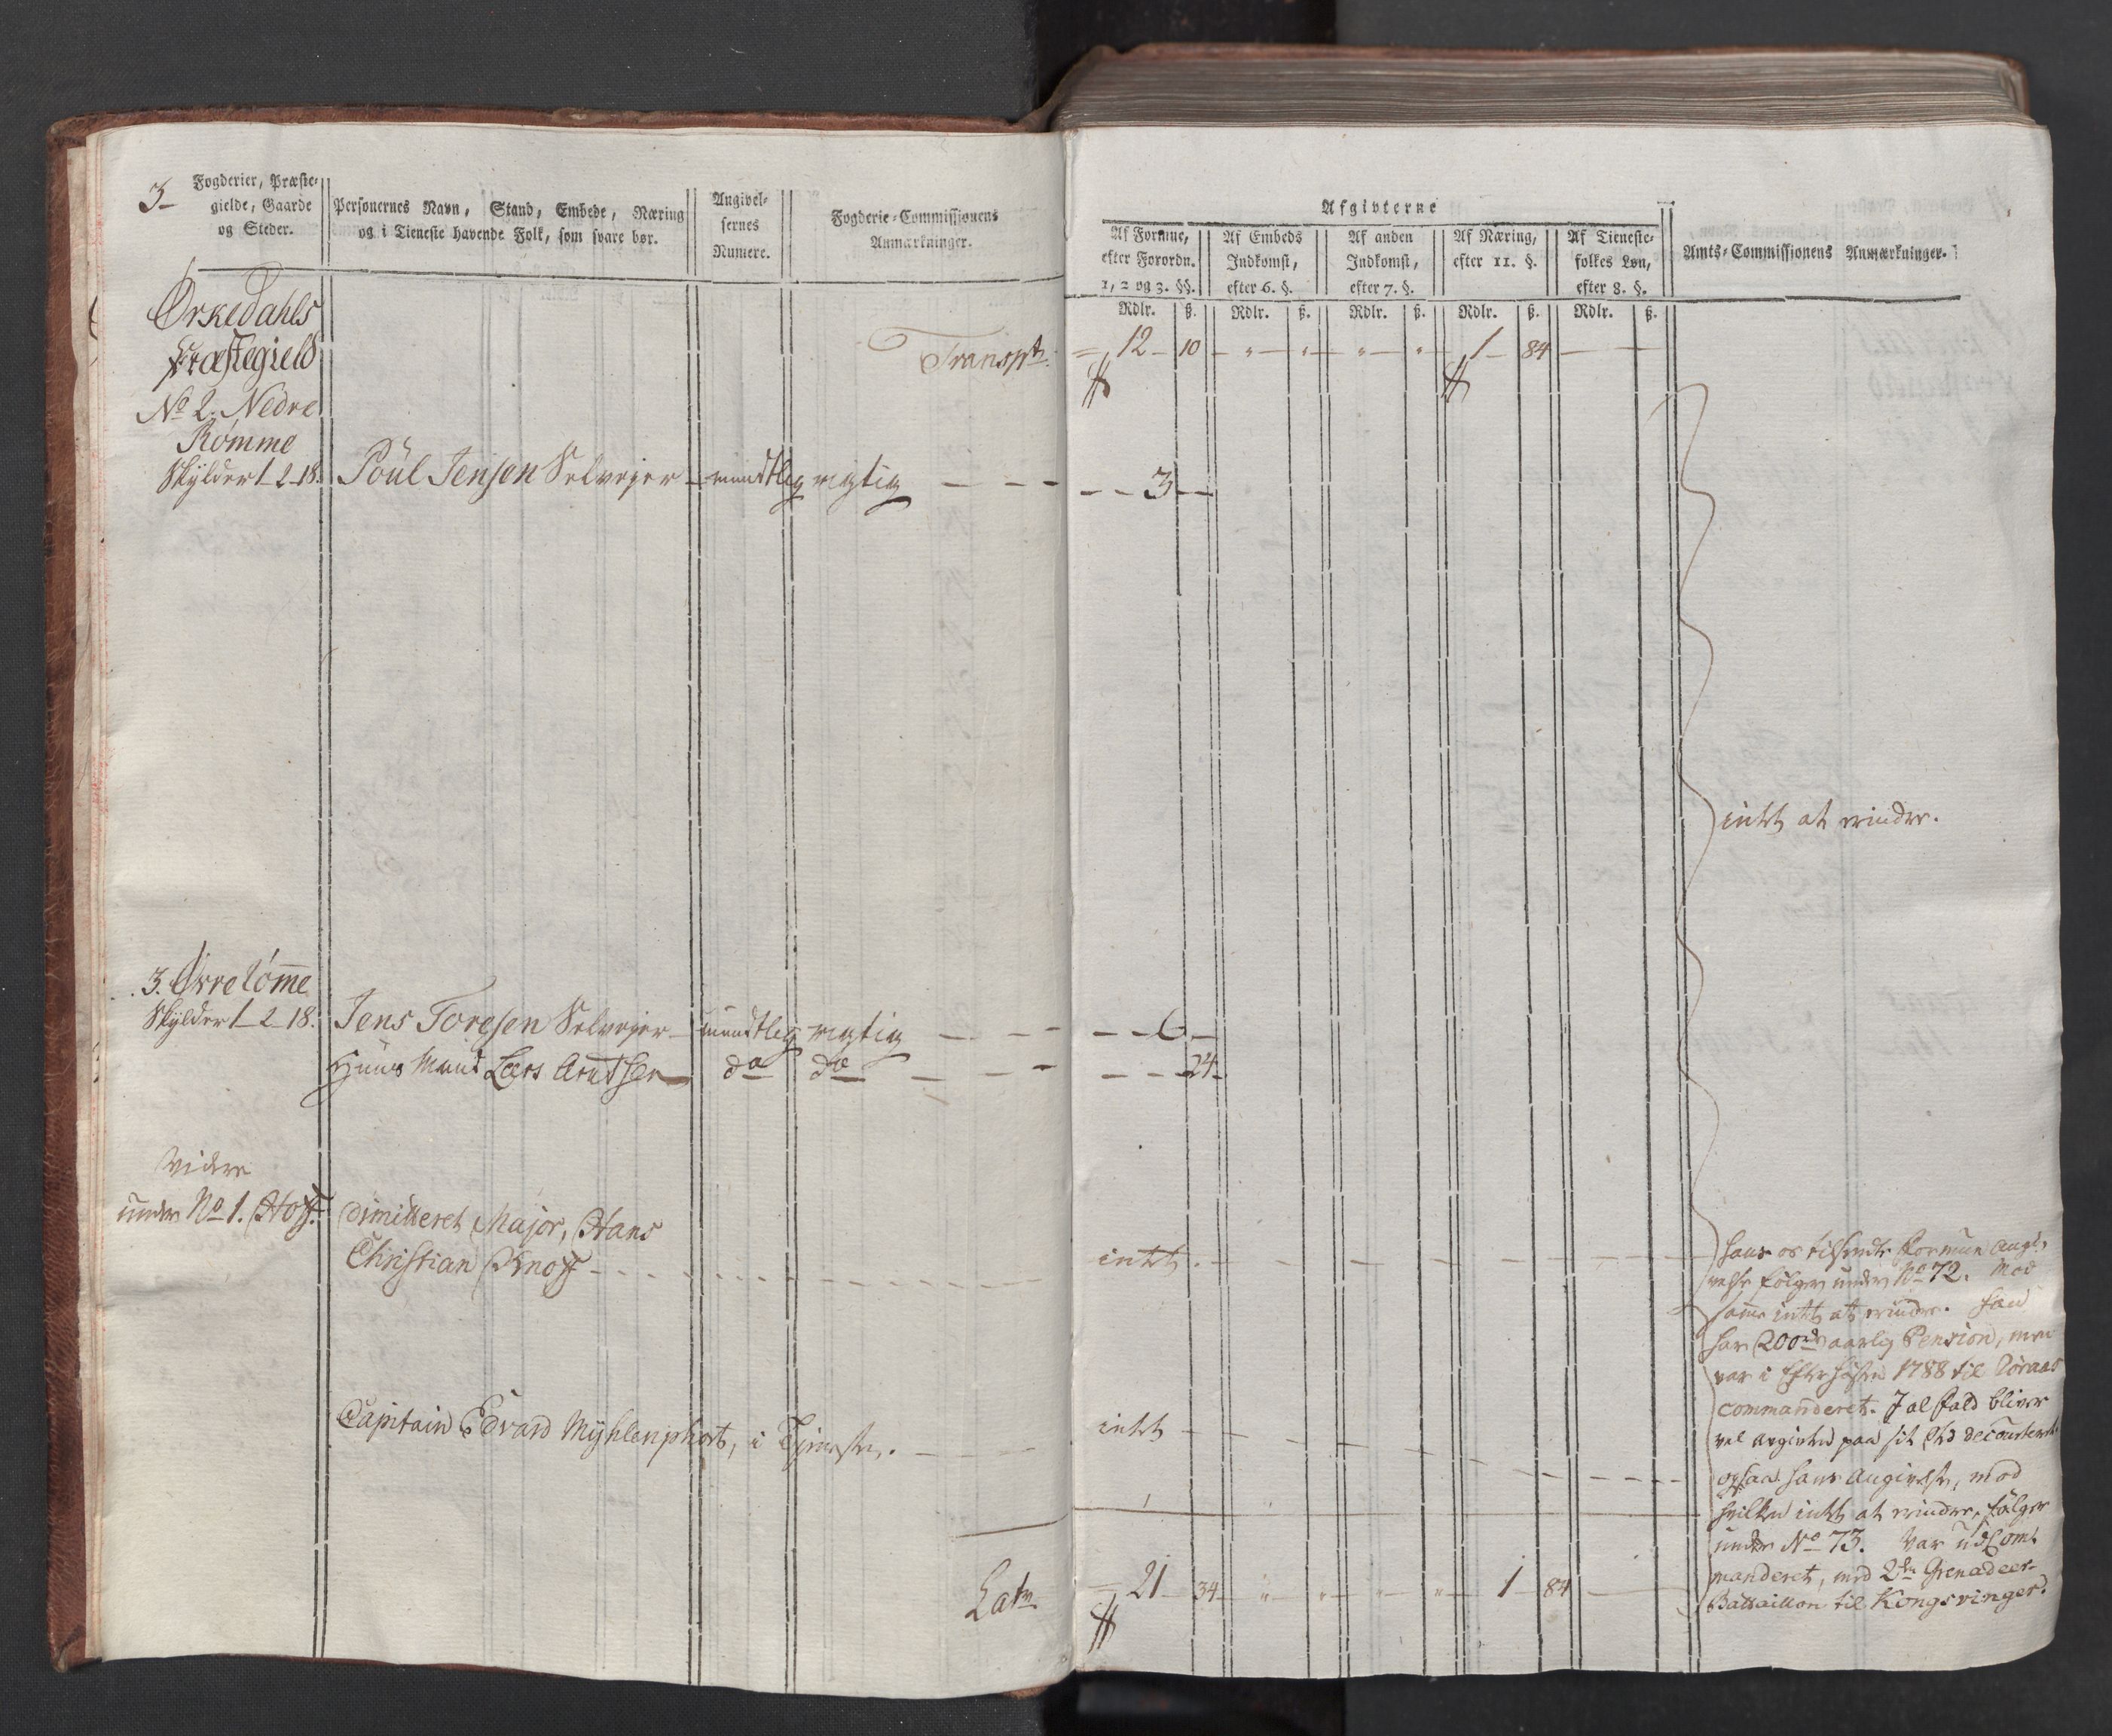 3
Fogderier, Præste-
gielde, Gaarde
og Steder.
Personernes Navn, Stand, Embede, Næring
og i Tieneste havende Folk, som svare bør.
Angivel-
sernes
Numere.
Fogderie-Commissionens
Anmærkninger.
Afgivterne
Af Formue,
efter Forordn.
1, 2 og 3. §§.
Af Embeds
Indkomst,
efter 6. §.
Af anden
Indkomst,
efter 7. §.
Af Næring,
efter 11. §.
Af Tieneste-
folkes Løn,
efter 8. §.
Amts-Commissionens Anmærkninger.
Rdlr. ß. Rdlr. ß. Rdlr. ß. Rdlr. ß. Rdlr. ß.
Ørkedahls
Præstegield
Transpt 12 10 " " " " 1 84
No 2. Nedre
Rømme
Skylder 1-2-18. Poul Jensen Selvejer mundtlig rigtig 3
intet at erindre.
3. Øvre Rømme
Skylder 1-2-18. Jens Toresen Selvejer mundtlig rigtig 6
Huus Mand Lars Arntsen do do 24
Videre
under No 1. Hoff. dimitteret Major, Hans
Christian Knoff intet.
Hans os tilsendte Formue Angi-
velse følger under No 72. Mod
samme intet at erindre. Han
har 200 rd aarlig Pension, men
var i Efterhøsten 1788 til Röraas
commanderet. I al fald bliver
vel Avgivten paa sit Sted decourteret.
Capitain Edvard Mÿhlenphort, i Tjeneste. intet
ogsaa hans Angivelse, mod
hvilken intet at erindre, følger
under No 73. Var ud Com-
manderet, med 2den Grenadeer-
Battaillon til Kongsvinger.
Latr 21 34 " " " " 1 84